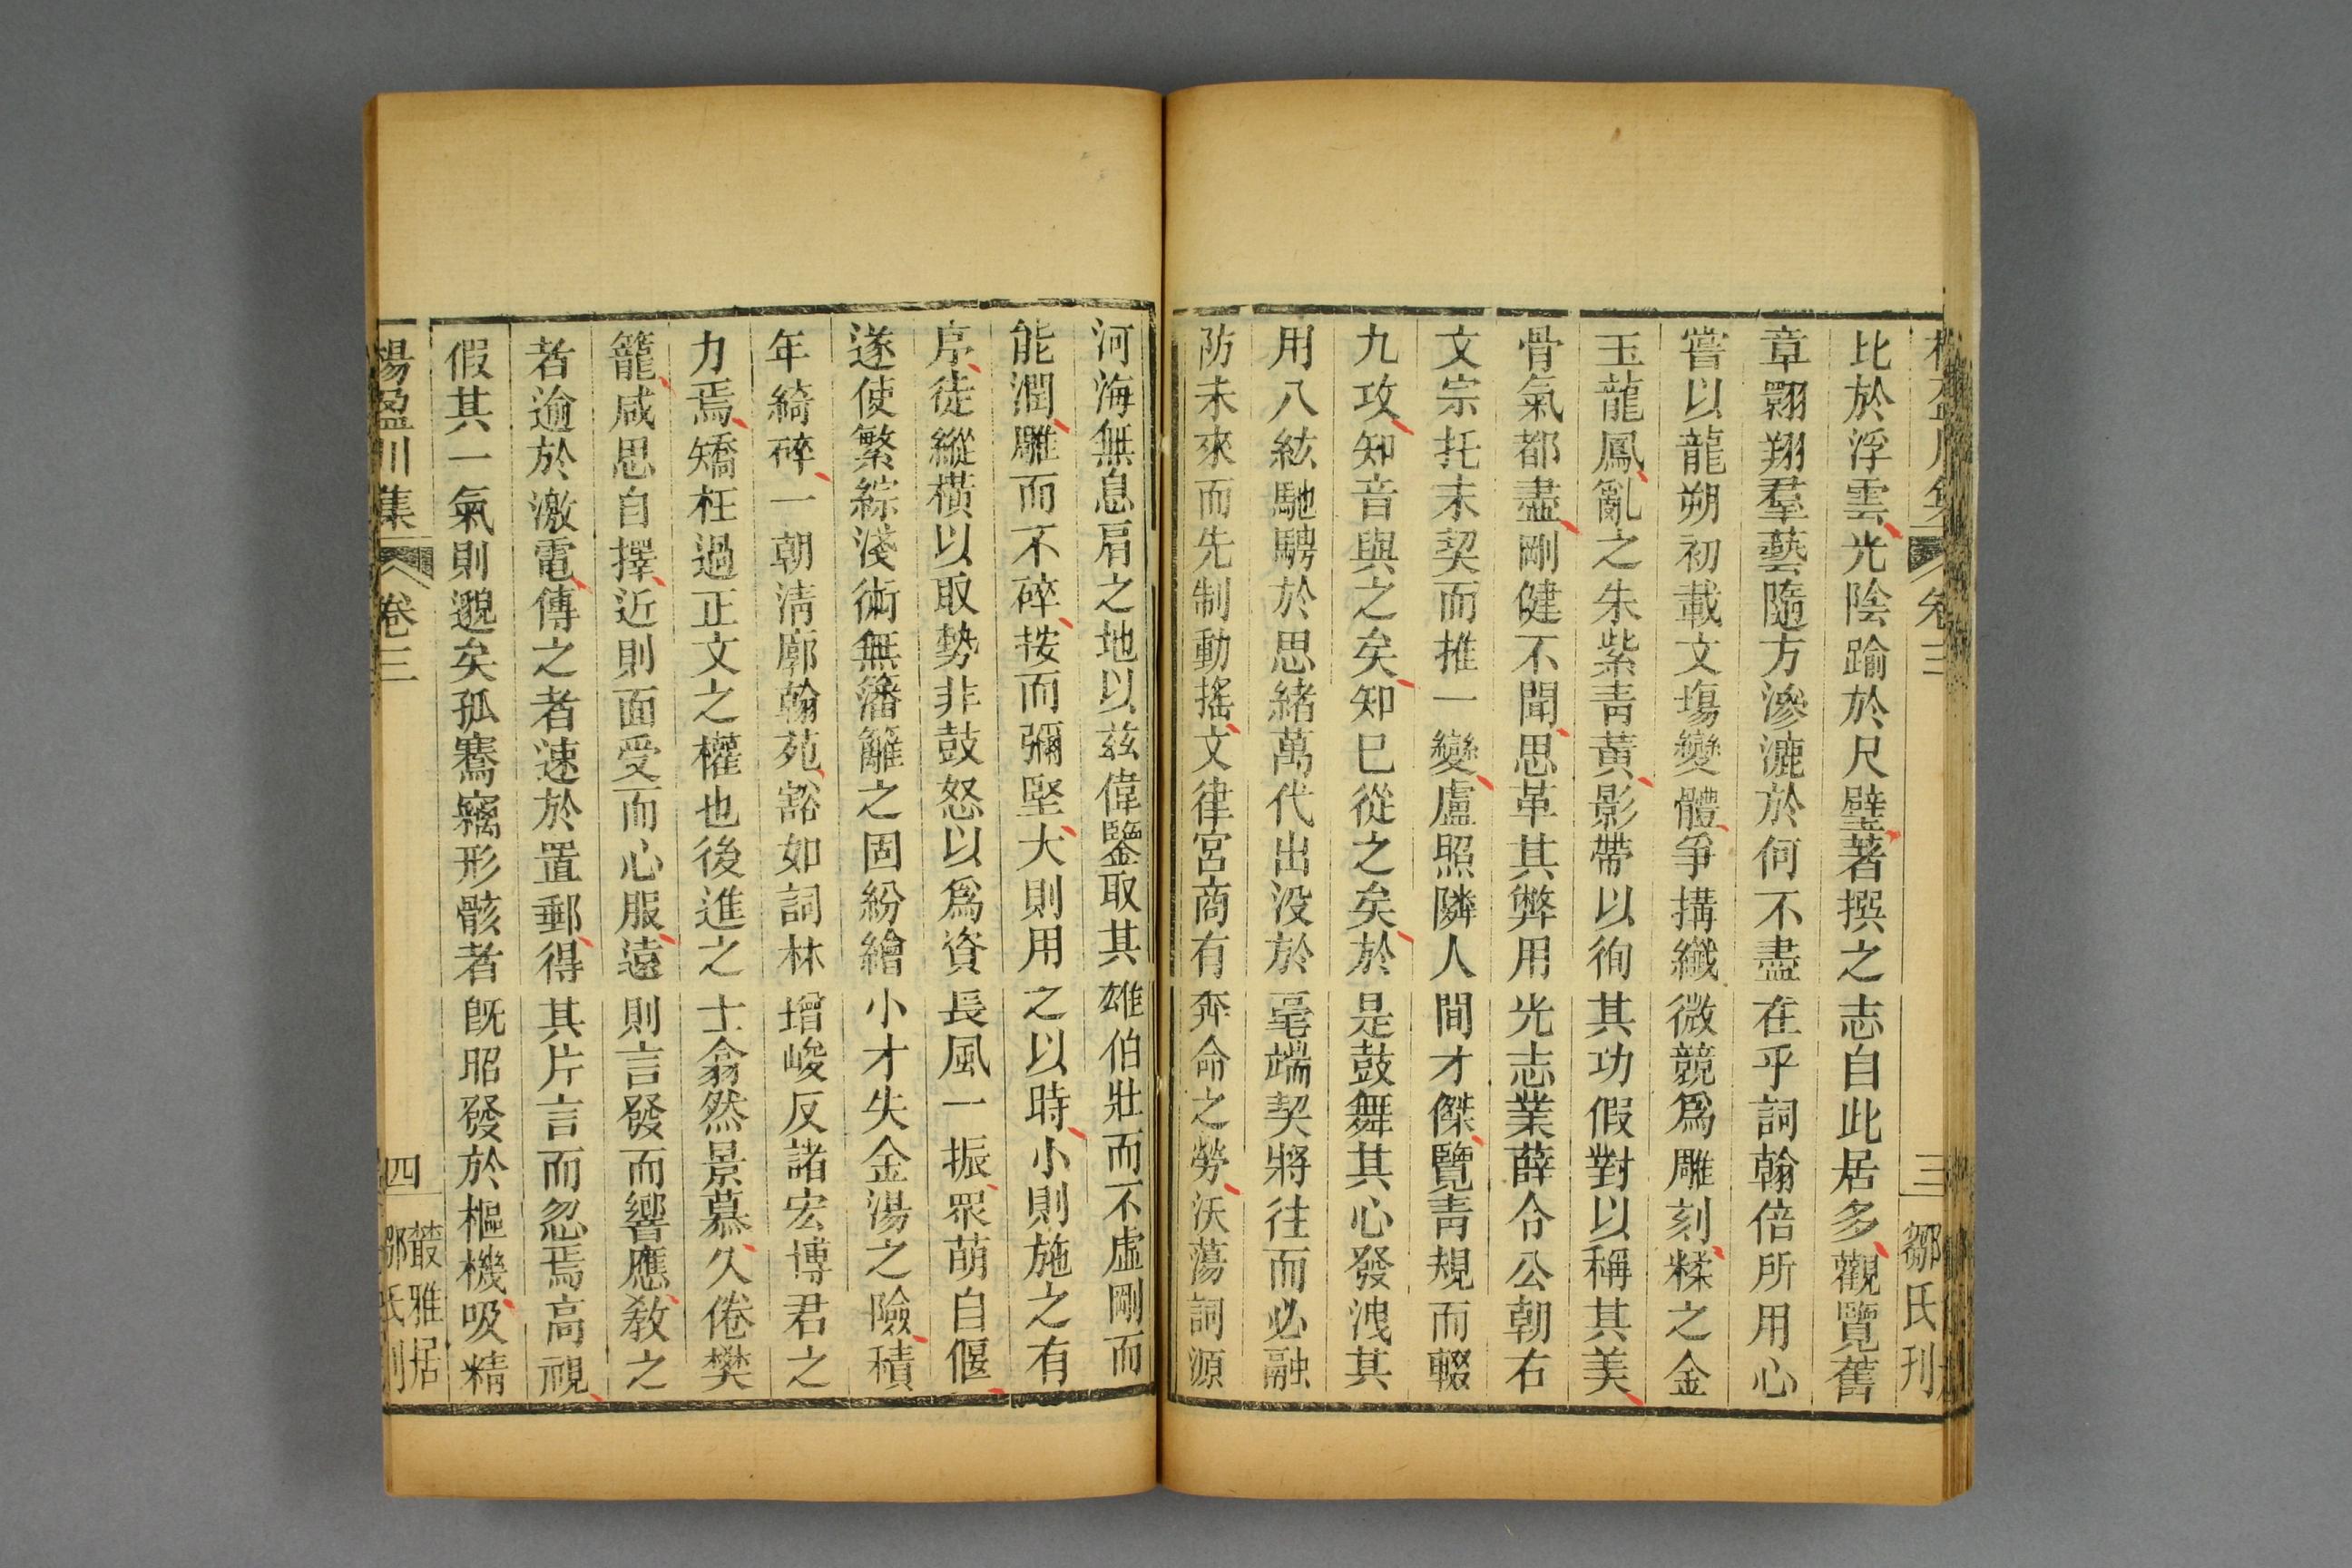 比於浮雲光陰踰於尺璧著撰之志自此居多觀覽舊
章翺翔羣藝隨方滲漉於何不盡在乎詞翰倍所用心
嘗以龍朔初載文塲變體爭搆纖微競爲雕刻糅之金
玉龍鳳亂之朱紫青黃影帶以徇其功假對以稱其美
骨氣都盡剛健不聞思革其弊用光志業薛令公朝右
文宗托末契而推一變盧照隣人間才傑覽青規而輟
九攻知音與之矣知已從之矣於是鼓舞其心發洩其
用八紘馳騁於思緒萬代出没於毫端契將往而必融
防未來而先制動搖文律宮商有奔命之勞沃蕩詞源
河海無息肩之地以兹偉鑒取其雄伯壯而不虛剛而
能潤雕而不碎按而彌堅大則用之以時小則施之有
序徒縱橫以取勢非鼓怒以爲資長風一振眾萌自偃
遂使繁綜淺術無籓籬之固紛繪小才失金湯之險積
年綺碎一朝清廓翰苑豁如詞林增峻反諸宏博君之
力焉矯枉過正文之權也後進之士翕然景慕久倦樊
籠咸思自擇近則面受而心服遠則言發而響應教之
者逾於激電傳之者速於置郵得其片言而忽焉高視
假其一氣則邈矣孤騫竊形骸者旣昭發於樞機吸精
楊盈川集
卷三
四
叢雅居
鄒氏刊
卷三
三
鄒氏刊